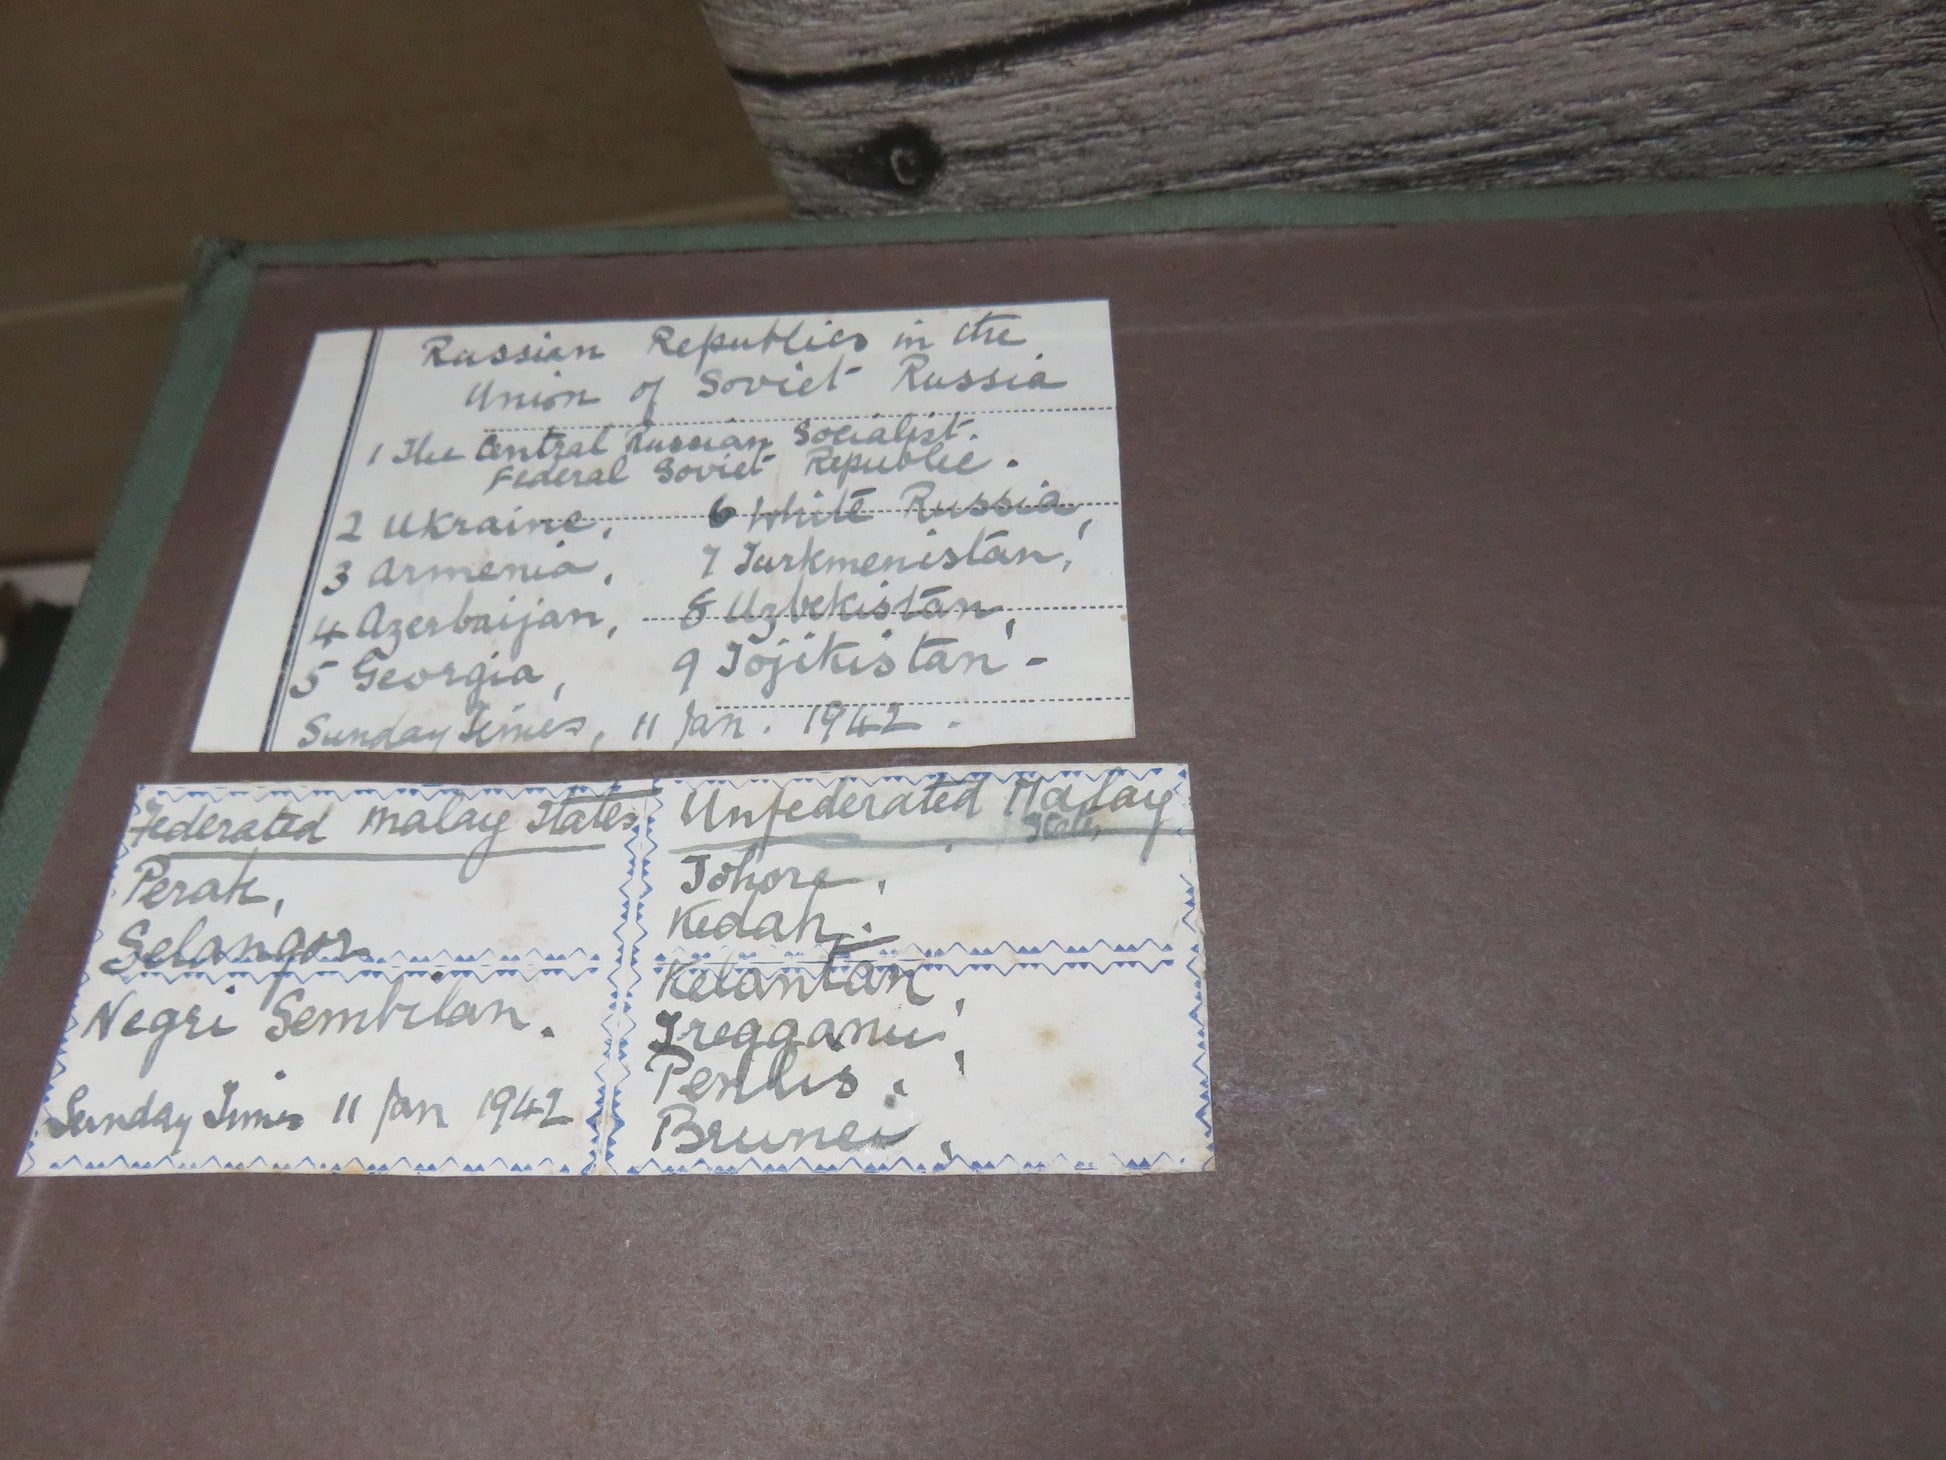 Russian Republics in the
Union of Soviet Russia
1 The Central Russian Socialist.
Federal Soviet Republic.
2 Ukraine, 6 White Russia,
3 Armenia, 7 Turkmenistan,
4 Azerbaijan, 8 Uzbekistan,
5 Georgia, 9 Tojikistan -
Sunday Times, 11 Jan. 1942.
Federated Malay States
Perak,
Selangor
Negri Sembilan.
Sunday Times 11 Jan 1942
Unfederated Malay
States
Johore,
Kedah,
Kelantan,
Tregganu,
Perlis,
Brunei,